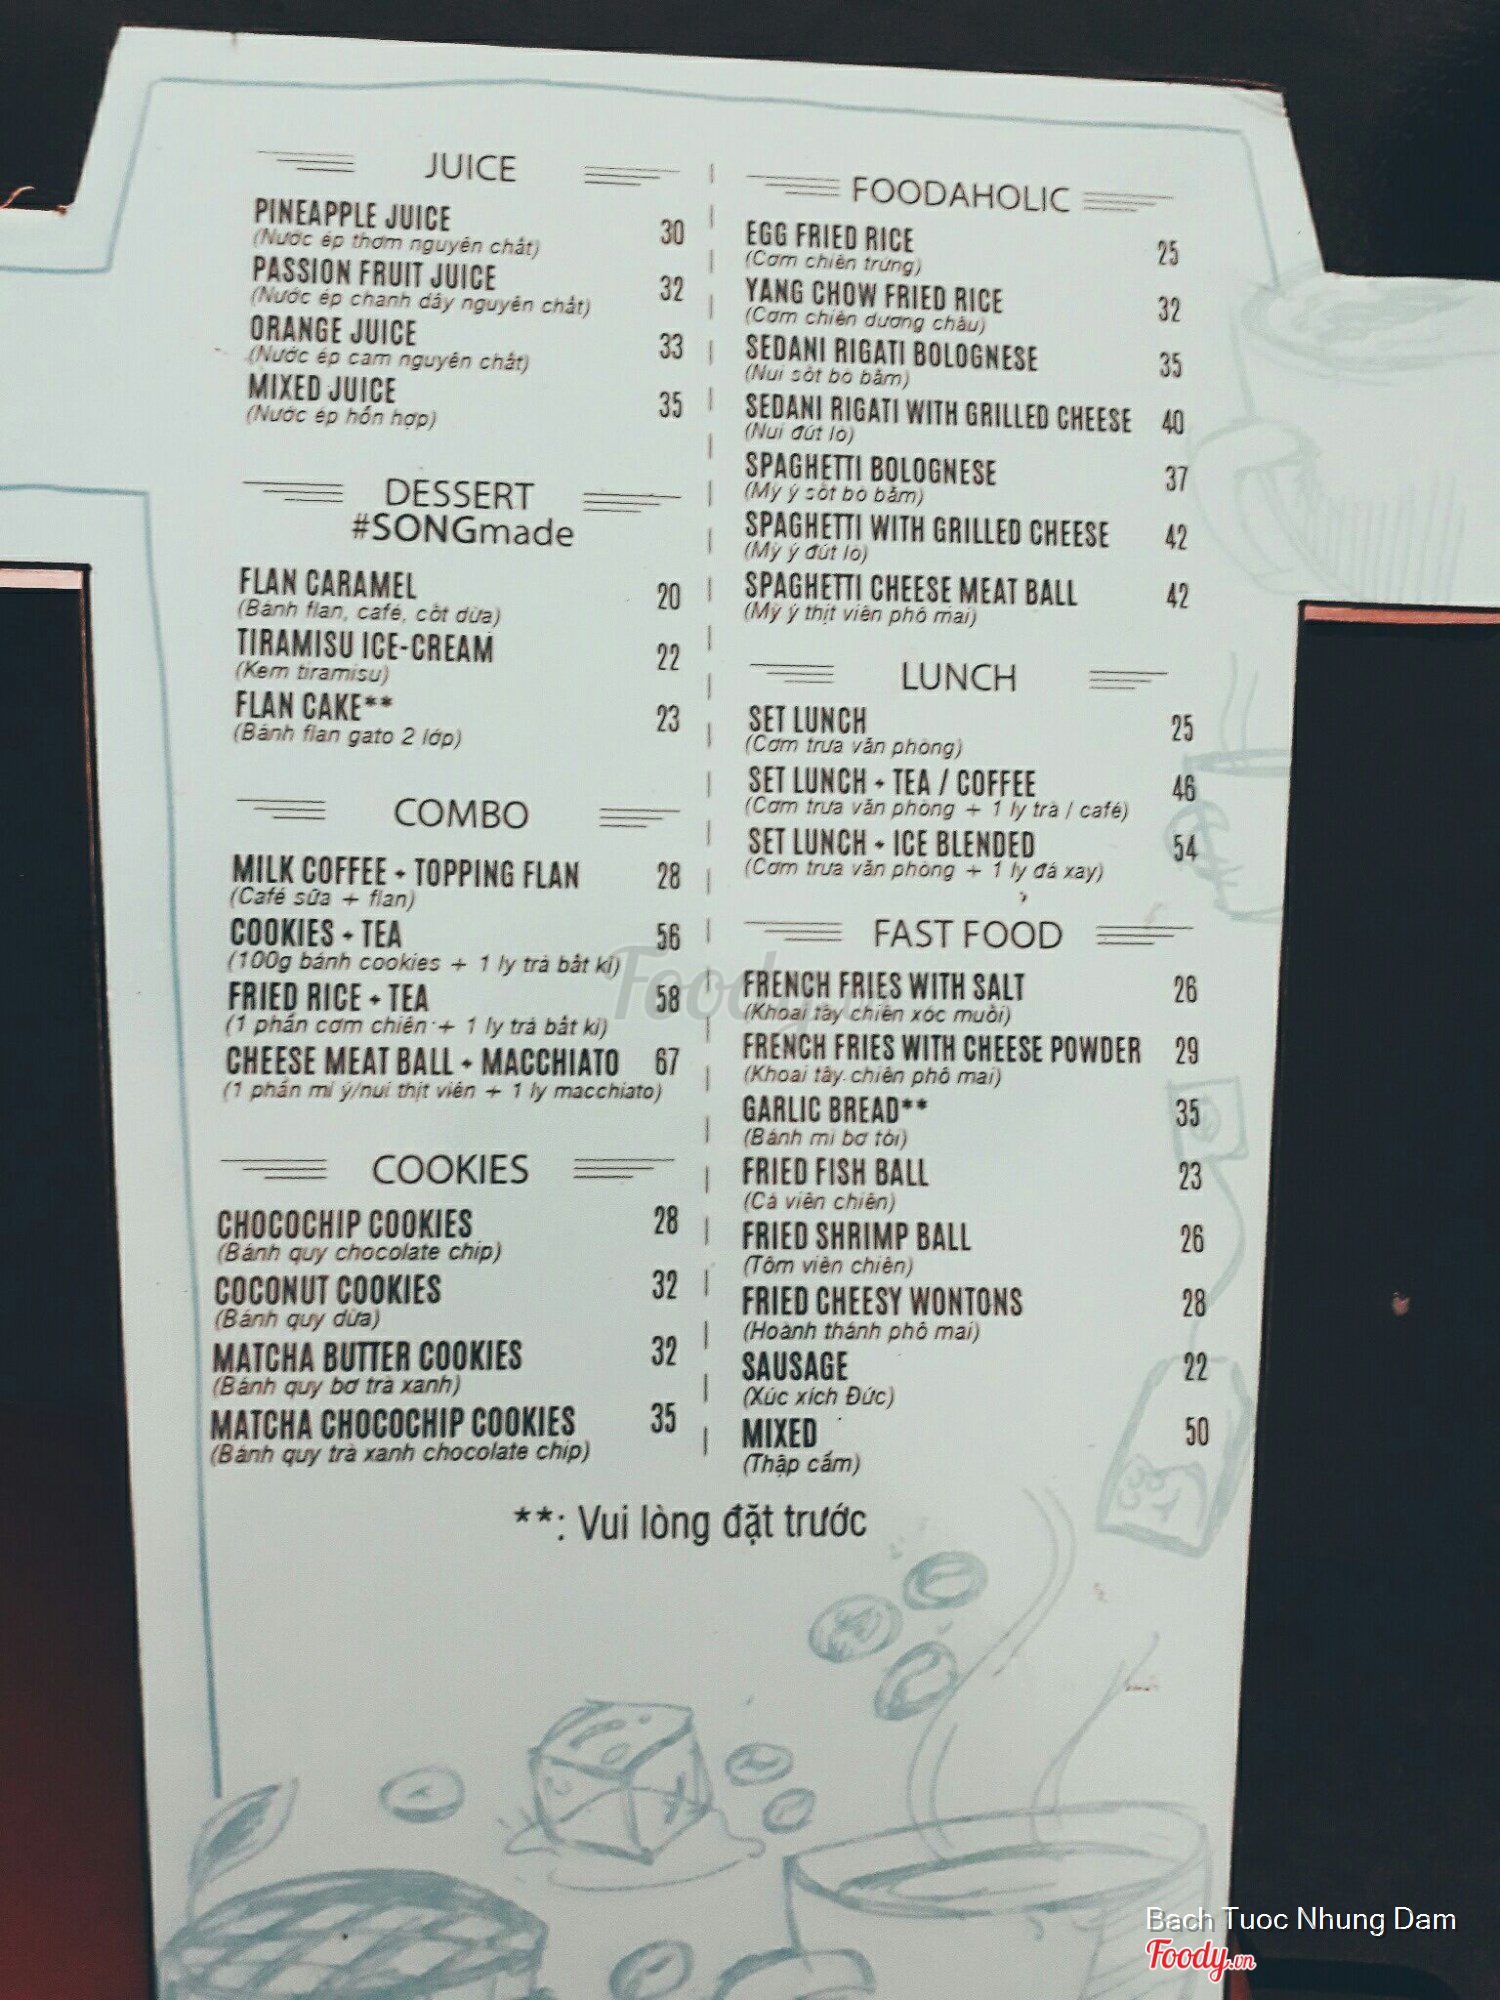 JUICE
PINEAPPLE JUICE 30
(Nước ép thơm nguyên chất)
PASSION FRUIT JUICE 32
(Nước ép chanh dây nguyên chất)
ORANGE JUICE 33
(Nước ép cam nguyên chất)
MIXED JUICE 35
(Nước ép hỗn hợp)
DESSERT
#SONGmade
FLAN CARAMEL 20
(Bánh flan, café, cốt dừa)
TIRAMISU ICE-CREAM 22
(Kem tiramisu)
FLAN CAKE** 23
(Bánh flan gato 2 lớp)
COMBO
MILK COFFEE + TOPPING FLAN 28
(Café sữa + flan)
COOKIES + TEA 56
(100g bánh cookies + 1 ly trà bất kì)
FRIED RICE + TEA 58
(1 phần cơm chiên + 1 ly trà bất kì)
CHEESE MEAT BALL + MACCHIATO 67
(1 phần mì ý/nui thịt viên + 1 ly macchiato)
COOKIES
CHOCOCHIP COOKIES 28
(Bánh quy chocolate chip)
COCONUT COOKIES 32
(Bánh quy dừa)
MATCHA BUTTER COOKIES 32
(Bánh quy bơ trà xanh)
MATCHA CHOCOCHIP COOKIES 35
(Bánh quy trà xanh chocolate chip)
FOODAHOLIC
EGG FRIED RICE 25
(Cơm chiên trứng)
YANG CHOW FRIED RICE 32
(Cơm chiên dương châu)
SEDANI RIGATI BOLOGNESE 35
(Nui sốt bò bằm)
SEDANI RIGATI WITH GRILLED CHEESE 40
(Nui đút lò)
SPAGHETTI BOLOGNESE 37
(Mỳ ý sốt bò bằm)
SPAGHETTI WITH GRILLED CHEESE 42
(Mỳ ý đút lò)
SPAGHETTI CHEESE MEAT BALL 42
(Mỳ ý thịt viên phô mai)
LUNCH
SET LUNCH 25
(Cơm trưa văn phòng)
SET LUNCH + TEA / COFFEE 46
(Cơm trưa văn phòng + 1 ly trà / café)
SET LUNCH + ICE BLENDED 54
(Cơm trưa văn phòng + 1 ly đá xay)
FAST FOOD
FRENCH FRIES WITH SALT 26
(Khoai tây chiên xóc muối)
FRENCH FRIES WITH CHEESE POWDER 29
(Khoai tây chiên phô mai)
GARLIC BREAD** 35
(Bánh mì bơ tỏi)
FRIED FISH BALL 23
(Cá viên chiên)
FRIED SHRIMP BALL 26
(Tôm viên chiên)
FRIED CHEESY WONTONS 28
(Hoành thánh phô mai)
SAUSAGE 22
(Xúc xích Đức)
MIXED 50
(Thập cẩm)
**: Vui lòng đặt trước
Foody
Bach Tuoc Nhung Dam
Foody.vn